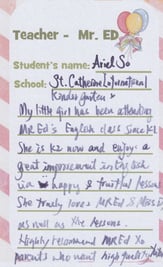 Teacher - Mr. ED
Student's name: Ariel So
School: St. Catherine International
Kindergarten
My little girl has been attending
Mr Ed's English class since K1
She is K2 now and enjoys a
great improvement in English
in happy & fruitful lessons
She truly loves MR Ed &
as well as the lessons.
Highly recommend MR Ed to
parents who want high quality